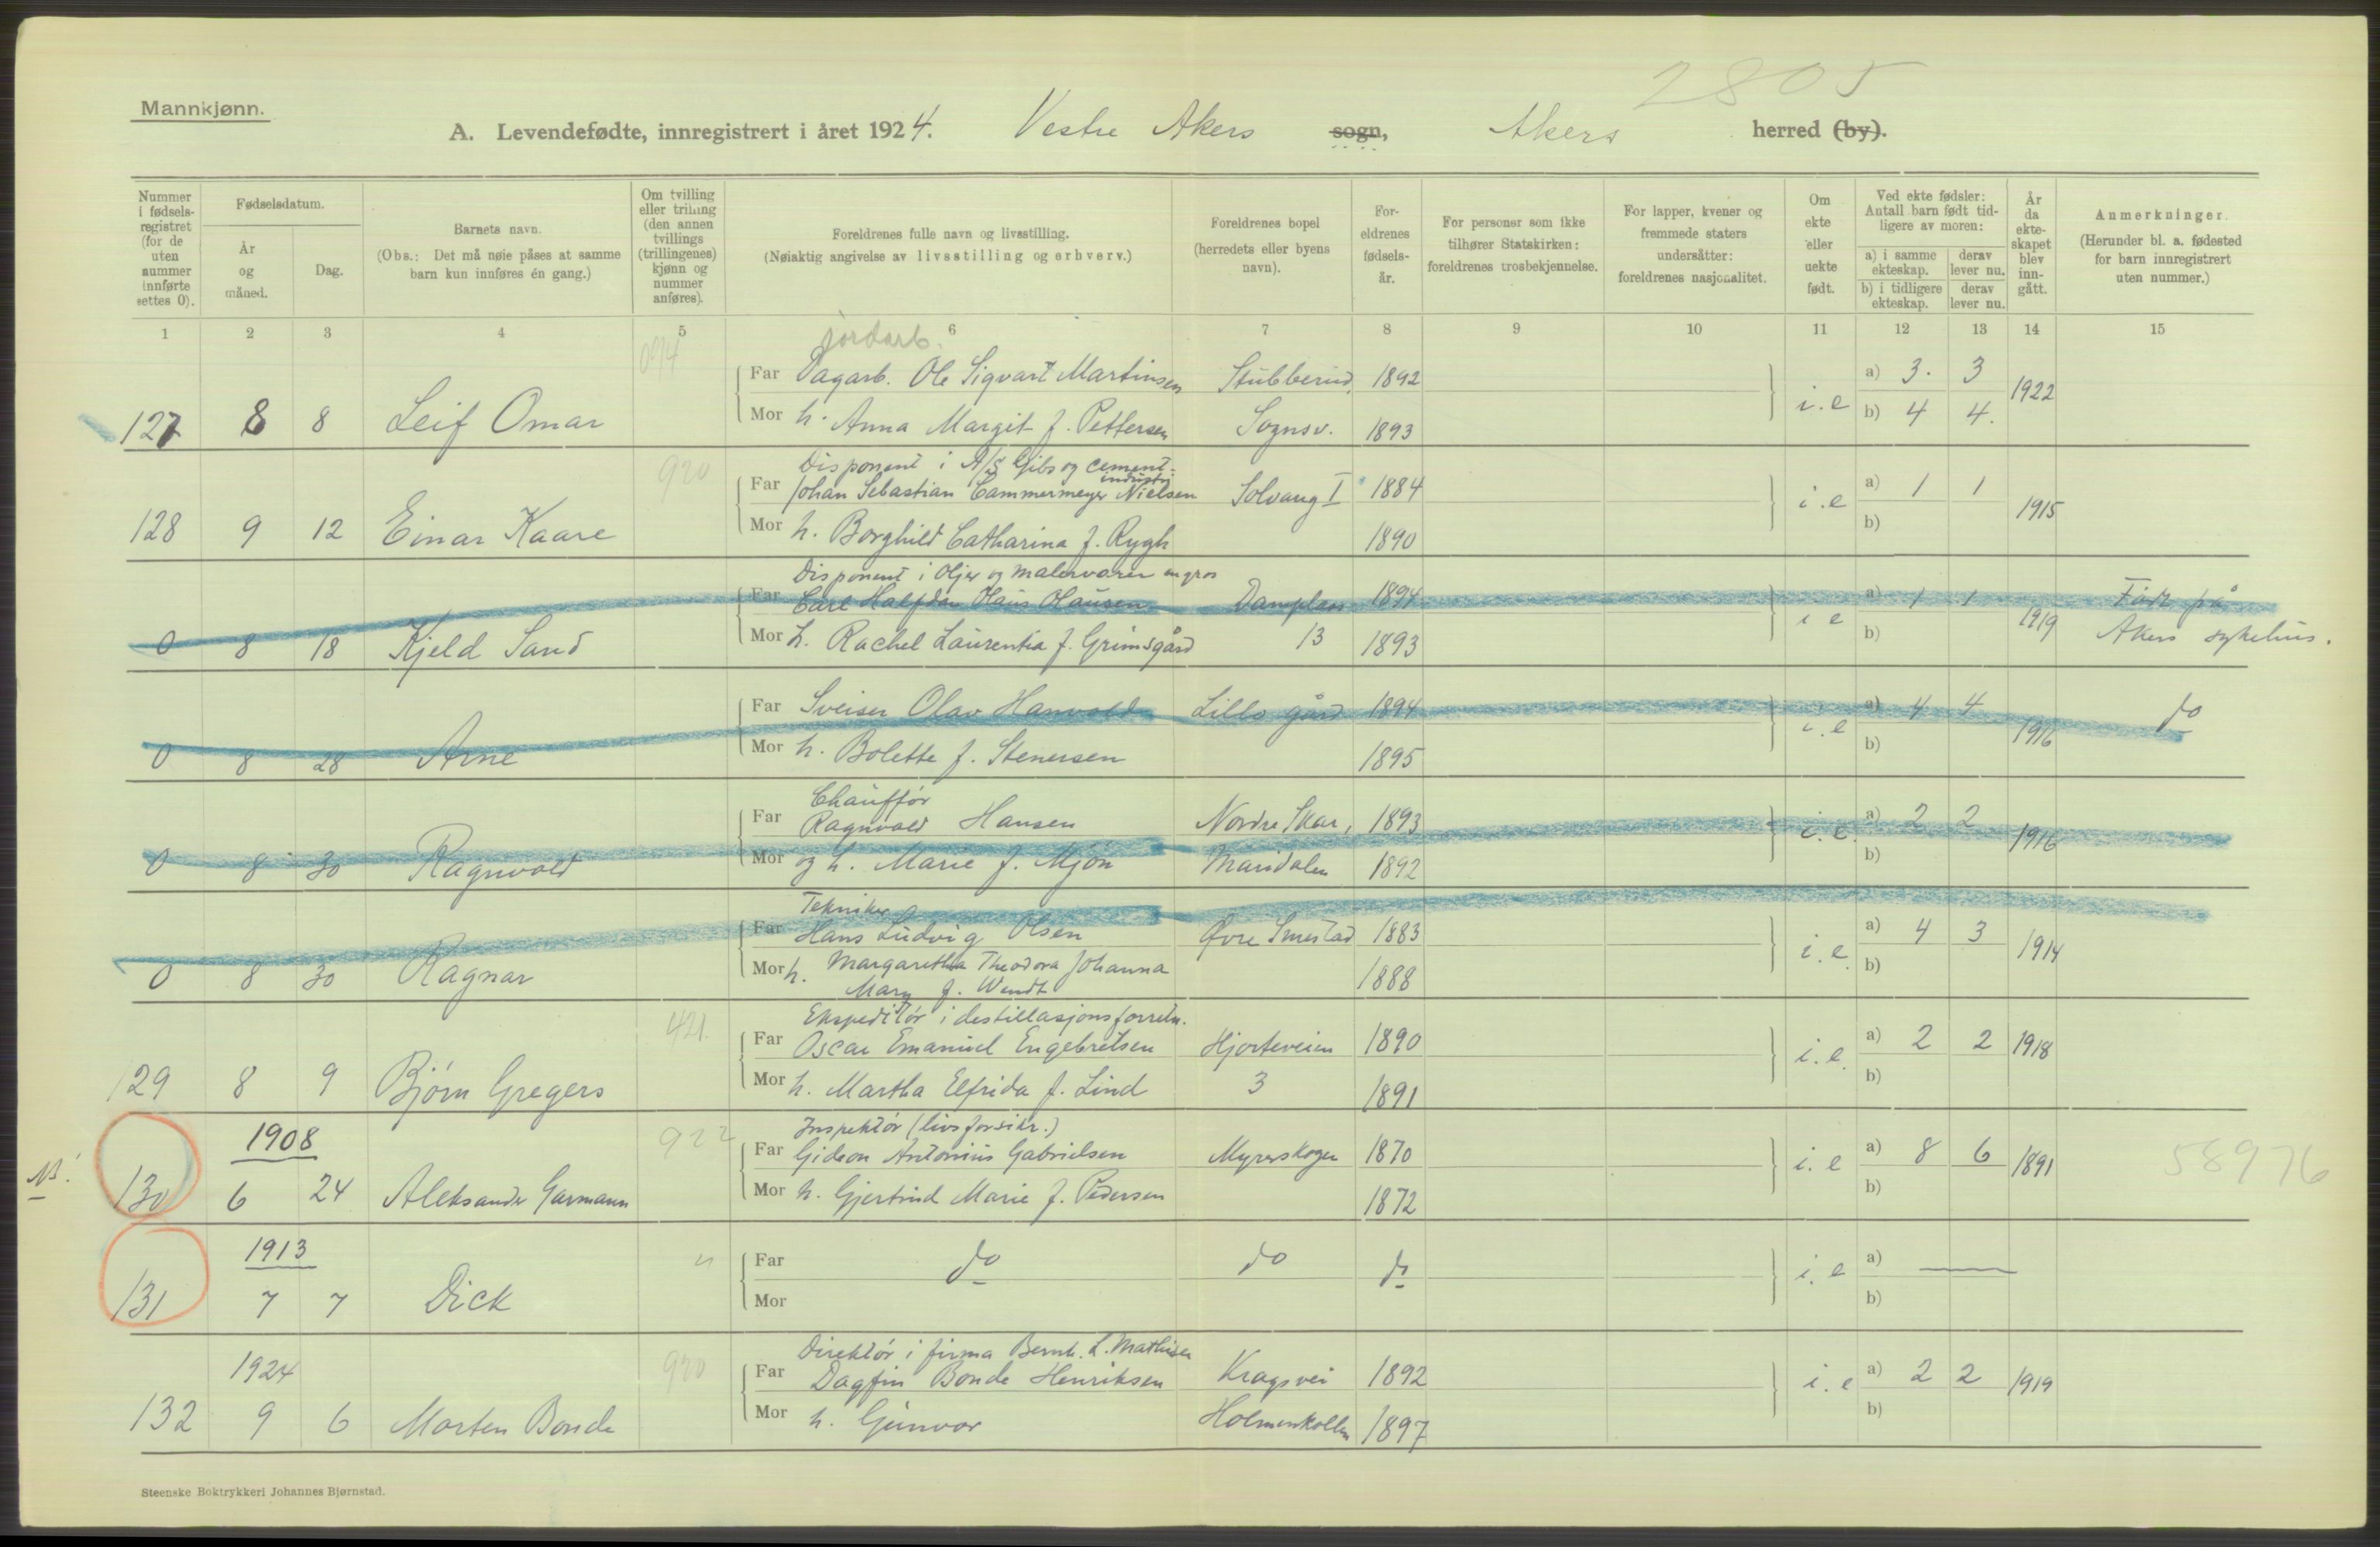 2805
Mannkjønn.
A. Levendefødte, innregistrert i året 1924. Vestre Akers sogn, Akers herred (by).
Nummer i fødsels-registret (for de uten nummer innførte settes 0).
Fødselsdatum.
År og måned.
Dag.
Barnets navn.
(Obs.: Det må nøie påses at samme barn kun innføres én gang.)
Om tvilling eller trilling (den annen tvillings (trillingenes) kjønn og nummer anføres).
Foreldrenes fulle navn og livsstilling.
(Nøiaktig angivelse av livsstilling og erhverv.)
Foreldrenes bopel (herredets eller byens navn).
For-eldrenes fødsels-år.
For personer som ikke tilhører Statskirken: foreldrenes trosbekjennelse.
For lapper, kvener og fremmede staters undersåtter: foreldrenes nasjonalitet.
Om ekte eller uekte født.
Ved ekte fødsler: Antall barn født tid-ligere av moren:
a) i samme ekteskap. derav lever nu.
b) i tidligere ekteskap. derav lever nu.
År da ekte-skapet blev inn-gått.
Anmerkninger.
(Herunder bl. a. fødested for barn innregistrert uten nummer.)
1 2 3 4 5 6 7 8 9 10 11 12 13 14 15
jordarb.
Far Dagarb. Ole Sigvart Martinsen Stubberud, 1892 a) 3. 3
127 8 8 Leif Omar Mor h. Anna Margit f. Pettersen Sognsv. 1893 i.e b) 4 4. 1922
920 Disponent i A/S Gibs og cement-industri
Far Johan Sebastian Cammermeyer Nielsen Solvang I 1884 a) 1 1
128 9 12 Einar Kaare Mor h. Borghild Catharina f. Rygh 1890 i.e b) 1915
Disponent i Oljer og malervarer engros
Far Carl Halfdan Hans Olausen Damplass 1894 a) 1 1 Født på
0 8 18 Kjeld Sand Mor h. Rachel Laurentia f. Grimsgård 13 1893 i e b) 1919 Akers sykehus.
Far Sveiser Olav Hanvold Lillo gård 1894 a) 4 4 do
0 8 28 Arne Mor h. Bolette f. Stenersen 1895 i.e b) 1916
Chauffør
Far Ragnvald Hansen Nordre Skar, 1893 a) 2 2
0 8 30 Ragnvald Mor og h. Marie f. Mjøn Maridalen 1892 i.e. b) 1916
Tekniker
Far Hans Ludvig Olsen Øvre Smestad 1883 a) 4 3
0 8 30 Ragnar Mor h. Margaretha Theodora Johanna 1888 i.e. b) 1914
Mary f. Wendt
421. Ekspeditør i destillasjonsforretn.
Far Oscar Emanuel Engebretsen Hjorteveien 1890 a) 2 2 1918
129 8 9 Bjørn Gregers Mor h. Martha Elfrida f. Lind 3 1891 i.e. b)
1908 922 Inspektør (livsforsikr.)
Far Gideon Antonius Gabrielsen Myrerskogen 1870 a) 8 6 58976
NB! 130 6 24 Aleksander Garmann Mor h. Gjertrud Marie f. Pedersen 1872 i.e b) 1891
1913 " Far do do do a)
131 7 7 Dick Mor i.e b)
1924 920 Direktør i firma Bernh. L. Mathisen
Far Dagfin Bonde Henriksen Kragsvei 1892 a) 2 2
132 9 6 Morten Bonde Mor h. Gunvor Holmenkollen 1897 i.e b) 1919
Steenske Boktrykkeri Johannes Bjørnstad.